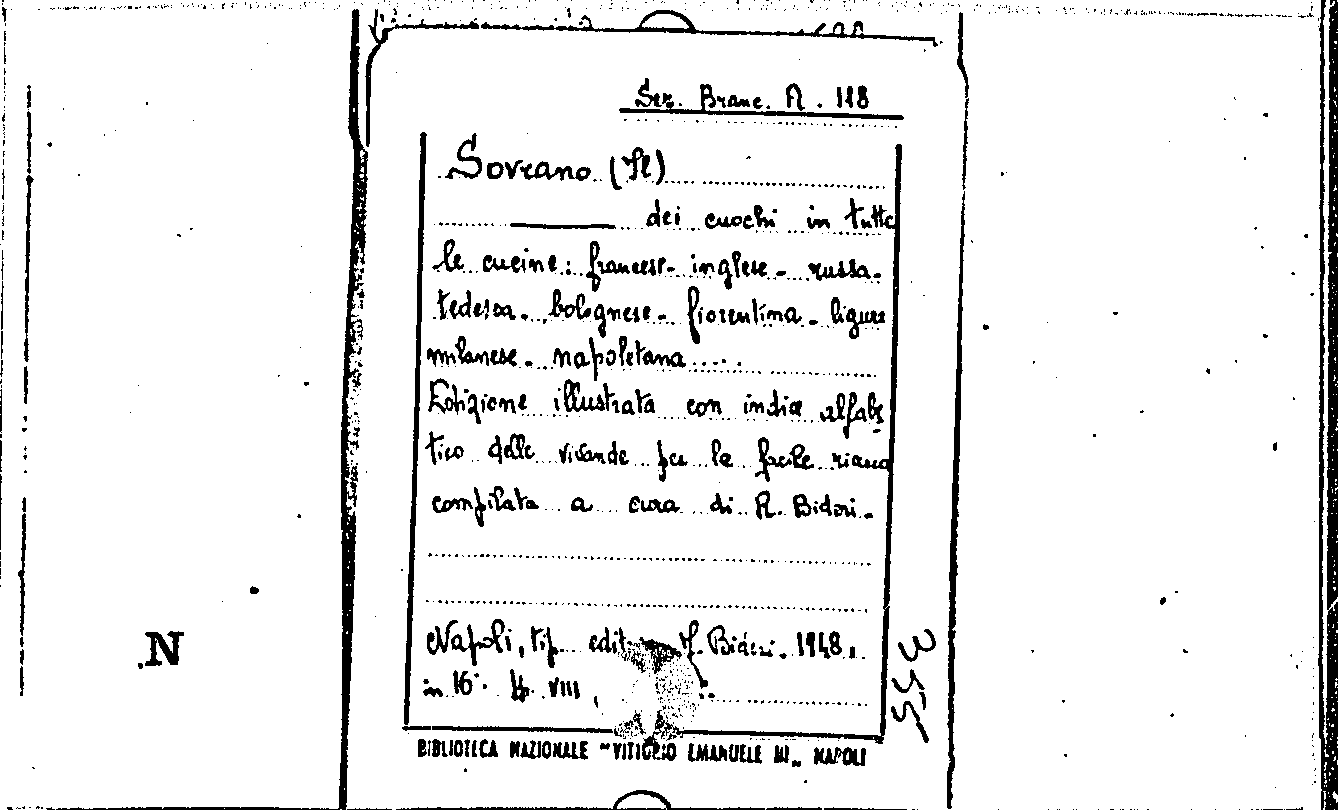 Sez. Branc. A. 118
Sovrano (Il)
dei cuochi in tutte
le cucine: francese - inglese - russa -
tedesca - bolognese - fiorentina - ligure
milanese - napoletana .....
Edizione illustrata con indice alfabe
tico delle vivande per la facile ricerca
compilata a cura di A. Bideri -
Napoli, tip. edit. Bideri - 1948,
in 16° pp. VIII,
355
N
BIBLIOTECA NAZIONALE "VITTORIO EMANUELE III" NAPOLI